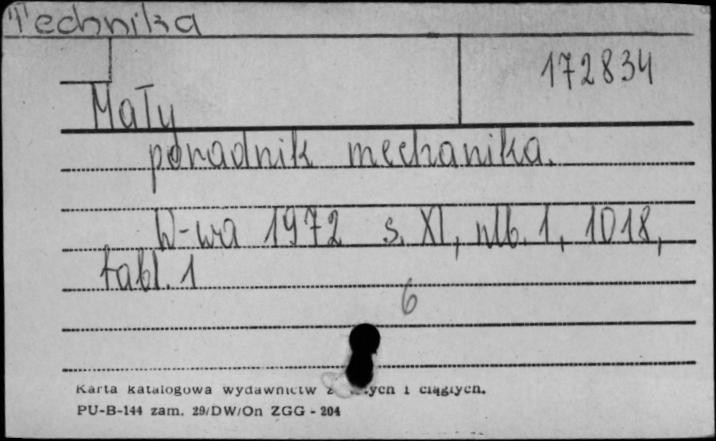 Technika
172834
Mały
poradnik mechanika.
W-wa 1972 s. XI, nlb. 1, 1018,
tabl. 1
6
Karta katalogowa wydawnictw i ciągłych.
PU-B-144 zam. 29/DW/On ZGG - 204